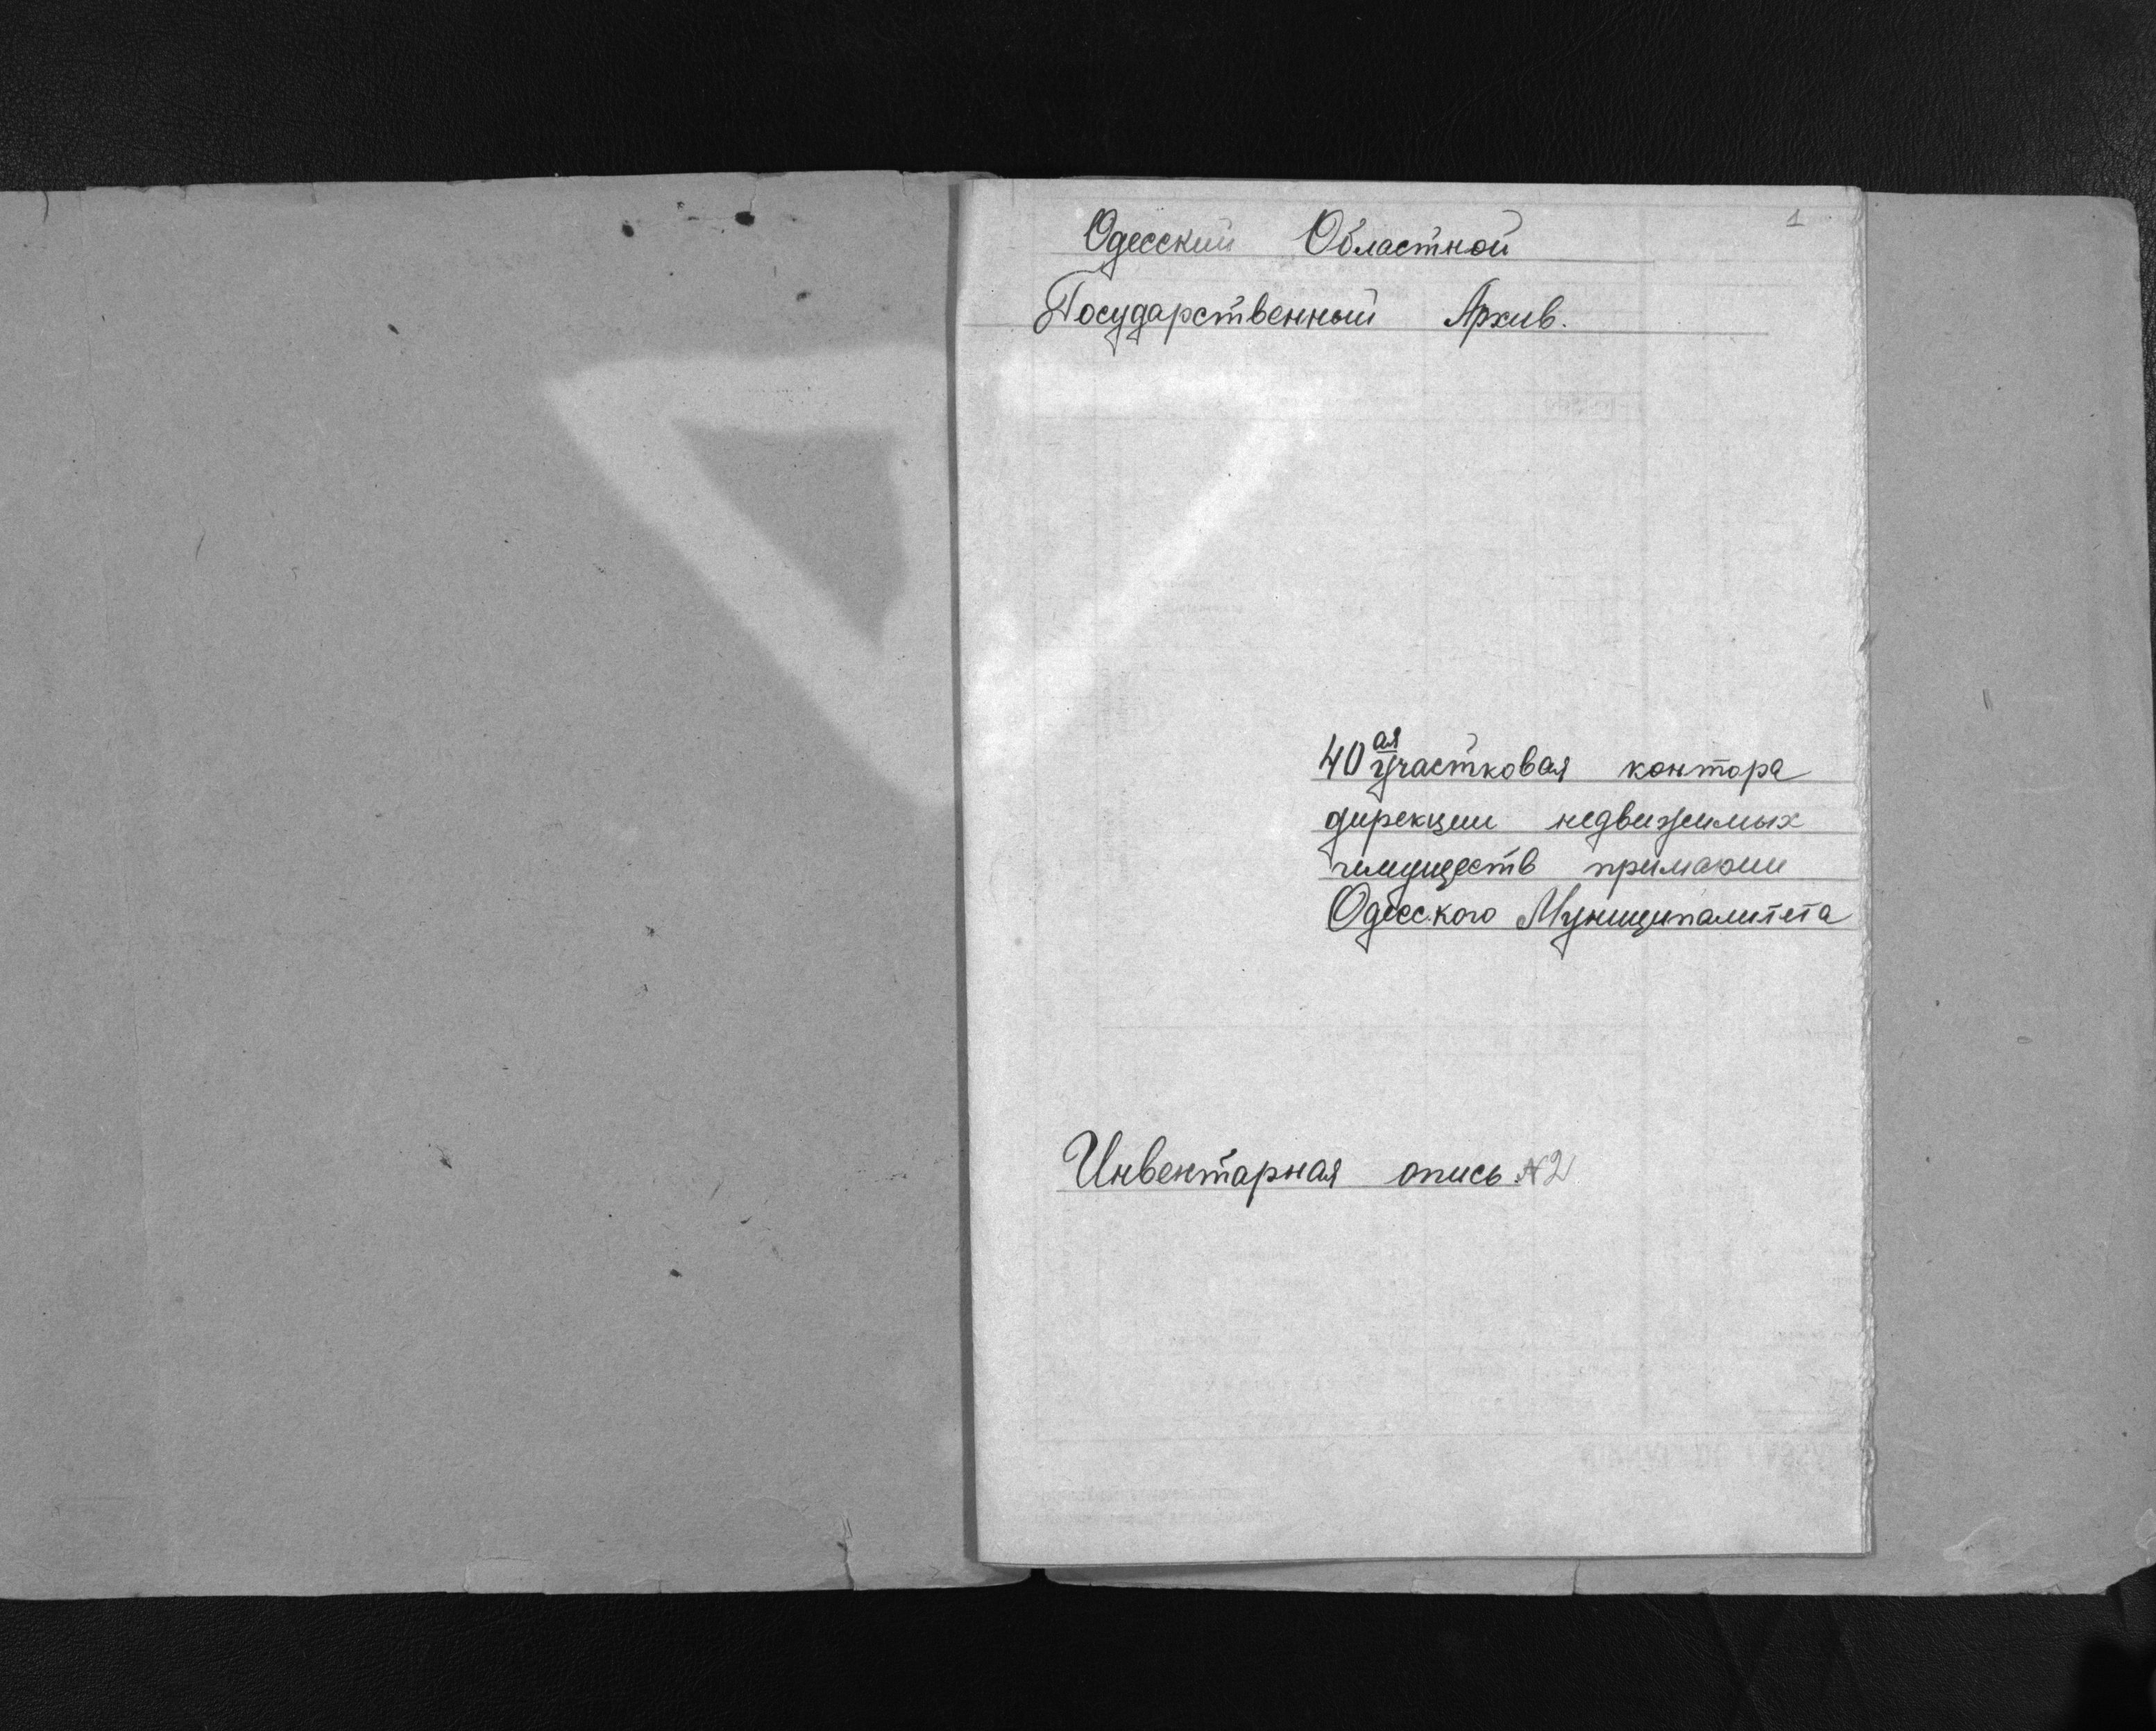 1
Одесский Областной
Государственный Архив.
40ая участковая контора
дирекции недвижимых
имуществ примарии
Одесского Муниципалитета
Инвентарная опись №2